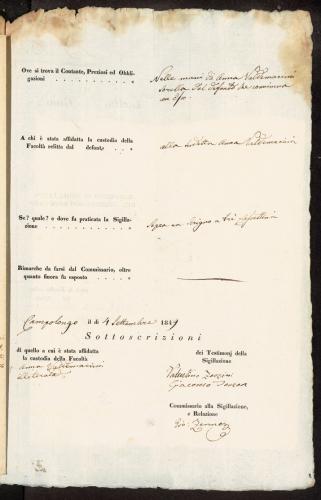 Ove si trova il Contante, Preziosi ed Obbli-
gazioni . . . . . . . . . .
Nelle mani di Anna Valdemarini
sorella del defonto che
A chi è stata affidata la custodia della
Facoltà relitta dal defont . . .
alla sudetta Anna Valdemarini
Se? quale? e dove fu praticata la Sigilla-
zione . . . . . . . . . .
Sopra un a tre
Rimarche da farsi dal Commissario, oltre
quanto finora fu esposto . . . . .
Campolongo il dì 4 Settembre 1849
Sottoscrizioni
di quello a cui è stata affidata
la custodia della Facoltà
Anna Valdemarini
illeterata
dei Testimonj della
Sigillazione
Valentino Zanzini
Giacomo
Commissario alla Sigillazione,
e Relazione
Gio.